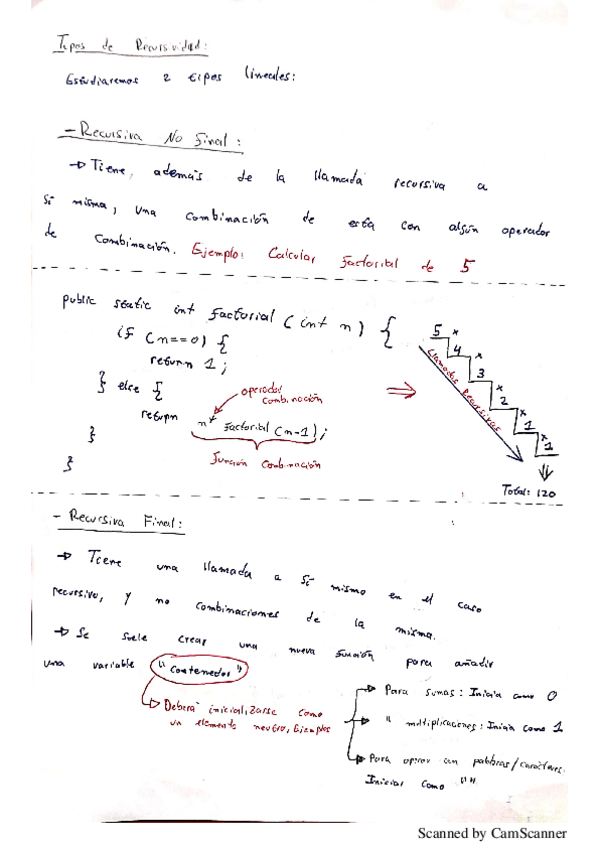 Tipos de Recursividad:
Estudiaremos 2 tipos lineales:
- Recursiva No Final:
→ Tiene, además de la llamada recursiva a
sí misma, una combinación de esta con algún operador
de combinación. Ejemplo: Calcular factorial de 5
public static int factorial (int n) {
if (n==0) {
return 1;
} else {
return n* factorial (n-1);
}
}
operador
combinación
función combinación
⇒
5 *
4 *
3 *
2 *
1 *
1
Llamadas Recursivas
Total: 120
- Recursiva Final:
→ Tiene una llamada a sí mismo en el caso
recursivo, y no combinaciones de la misma.
→ Se suele crear una nueva función para añadir
una variable "contenedor"
→ Deberá inicializarse como
un elemento neutro, Ejemplos
→ Para sumas: Inicia como 0
→ " multiplicaciones: Inicia como 1
→ Para operar con palabras/caracteres.
Inicial como ""
Scanned by CamScanner